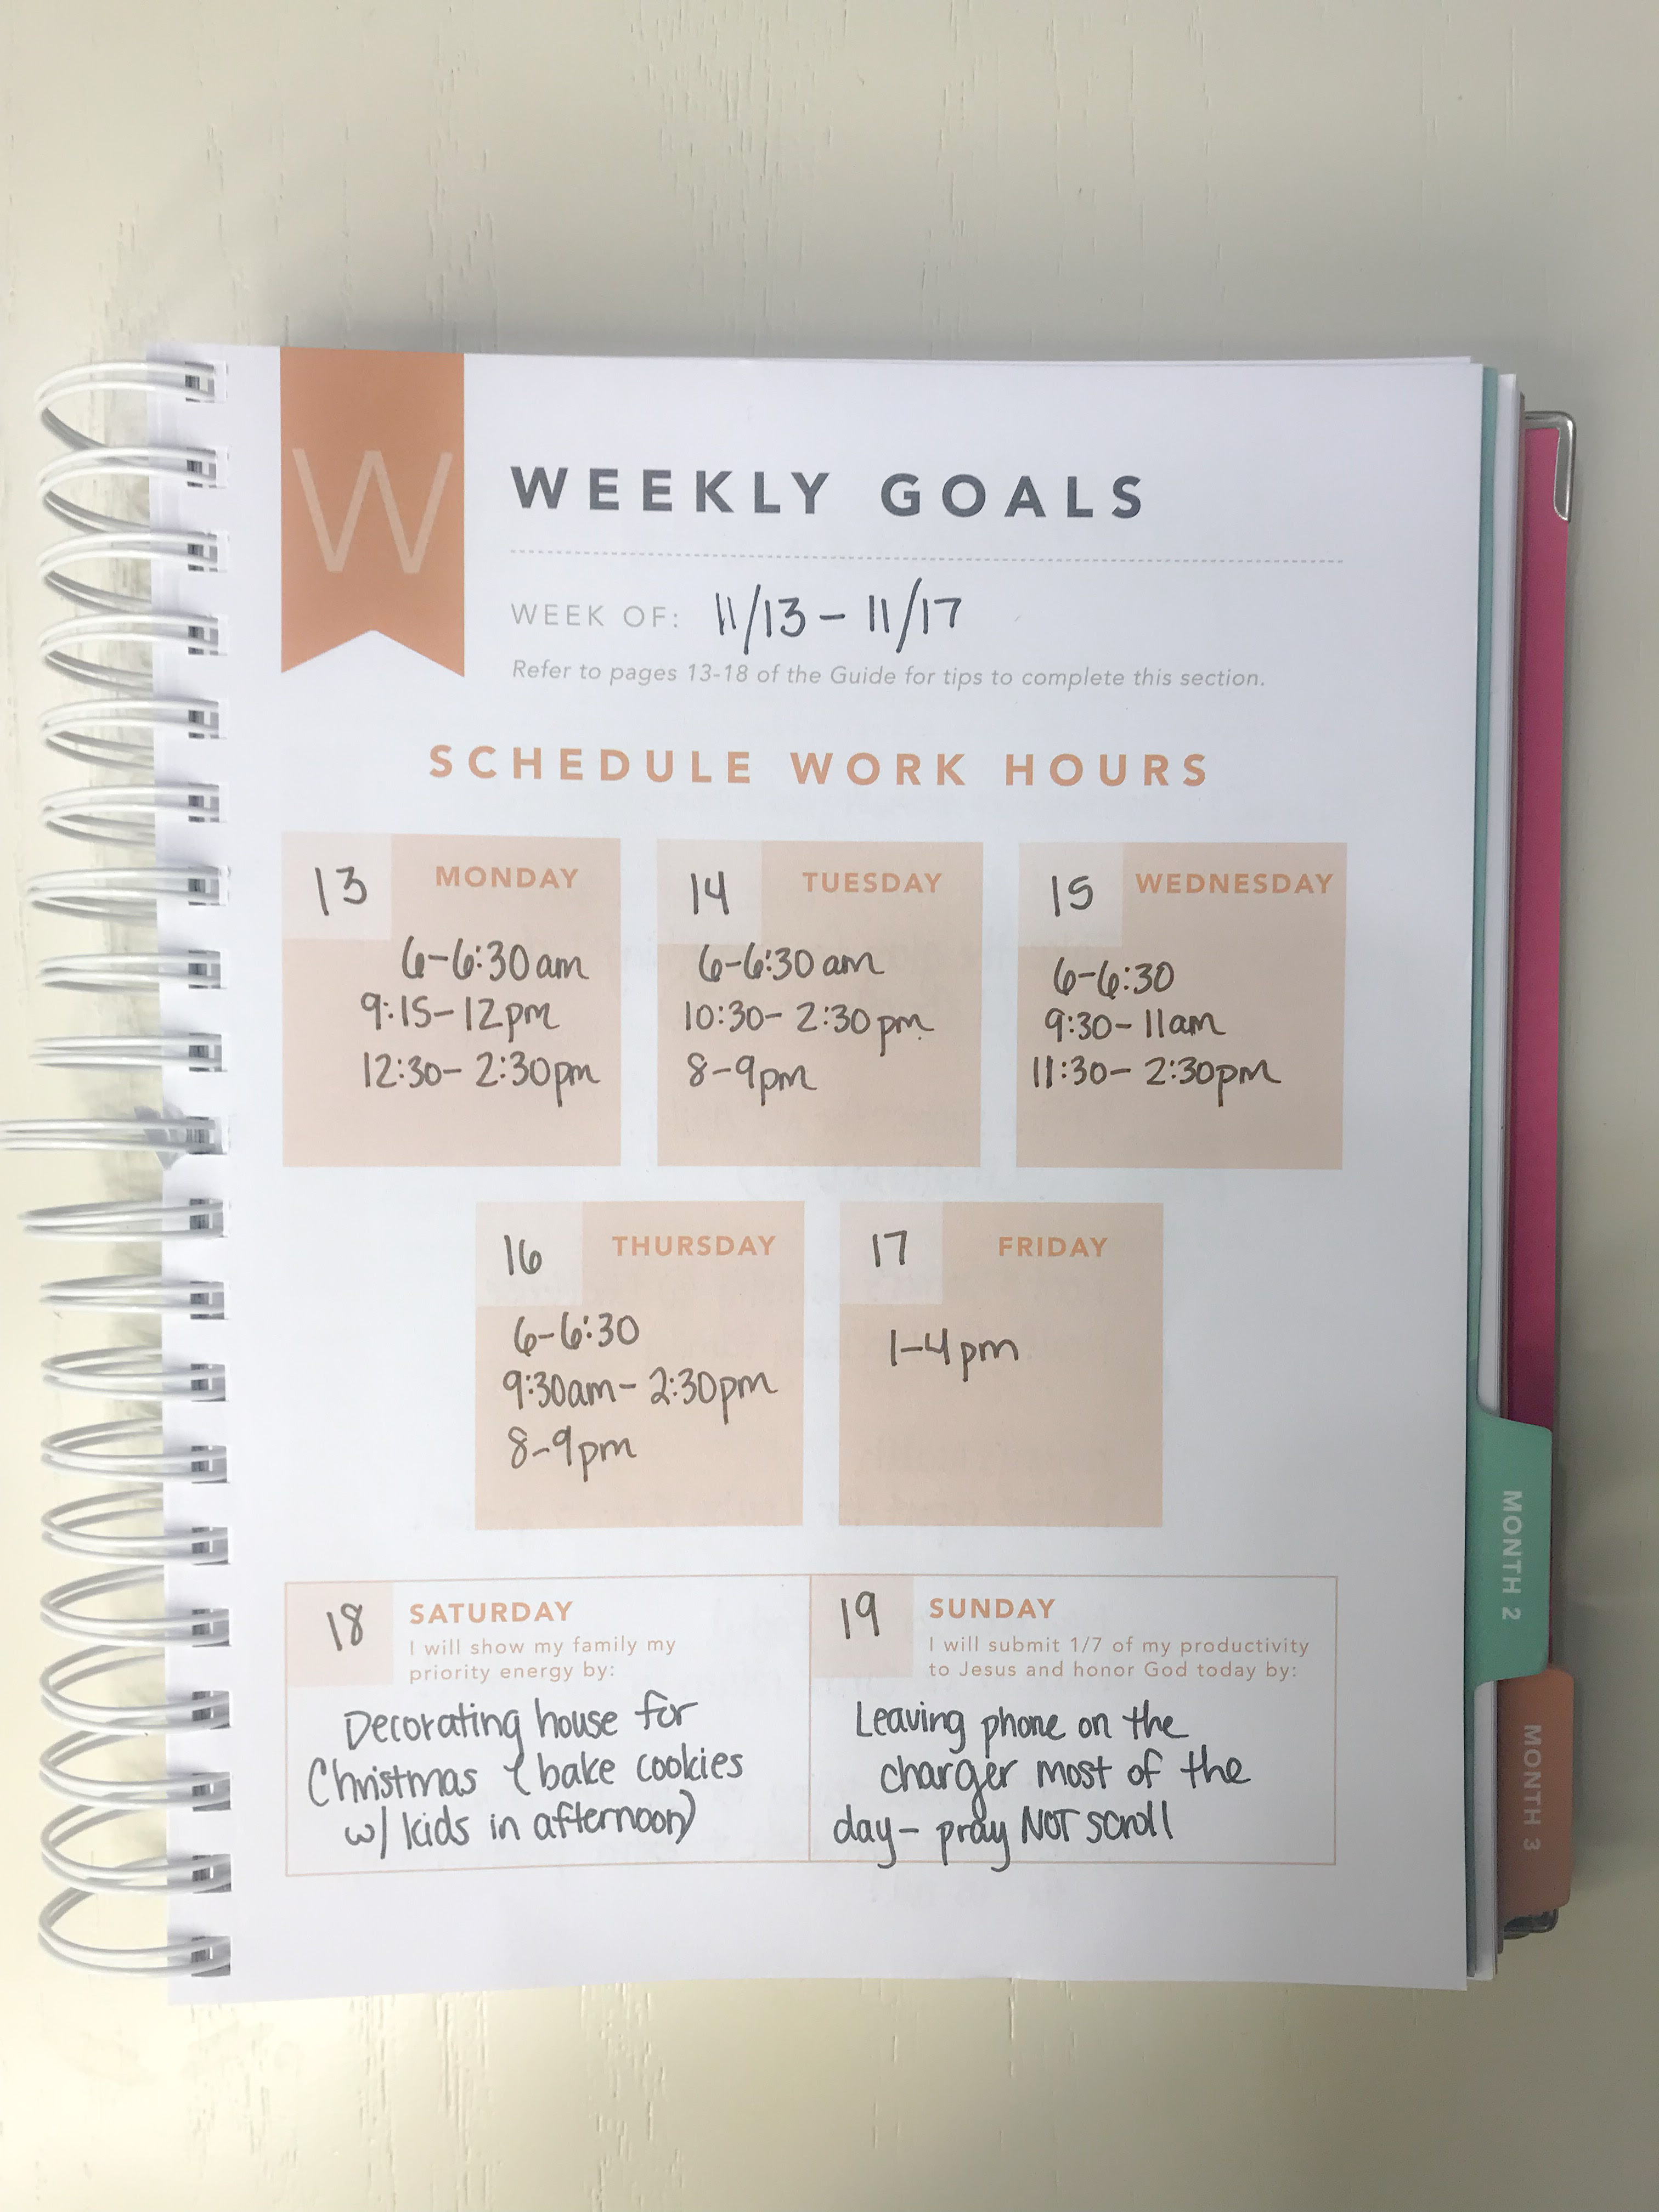 W
WEEKLY GOALS
WEEK OF: 11/13 - 11/17
Refer to pages 13-18 of the Guide for tips to complete this section.
SCHEDULE WORK HOURS
13 MONDAY
6-6:30 am
9:15-12pm
12:30-2:30pm
14 TUESDAY
6-6:30 am
10:30-2:30 pm
8-9pm
15 WEDNESDAY
6-6:30
9:30-11am
11:30-2:30pm
16 THURSDAY
6-6:30
9:30am-2:30pm
8-9pm
17 FRIDAY
1-4pm
18 SATURDAY
I will show my family my
priority energy by:
Decorating house for
Christmas (bake cookies
w/ kids in afternoon)
19 SUNDAY
I will submit 1/7 of my productivity
to Jesus and honor God today by:
Leaving phone on the
charger most of the
day- pray NOT scroll
MONTH 2
MONTH 3